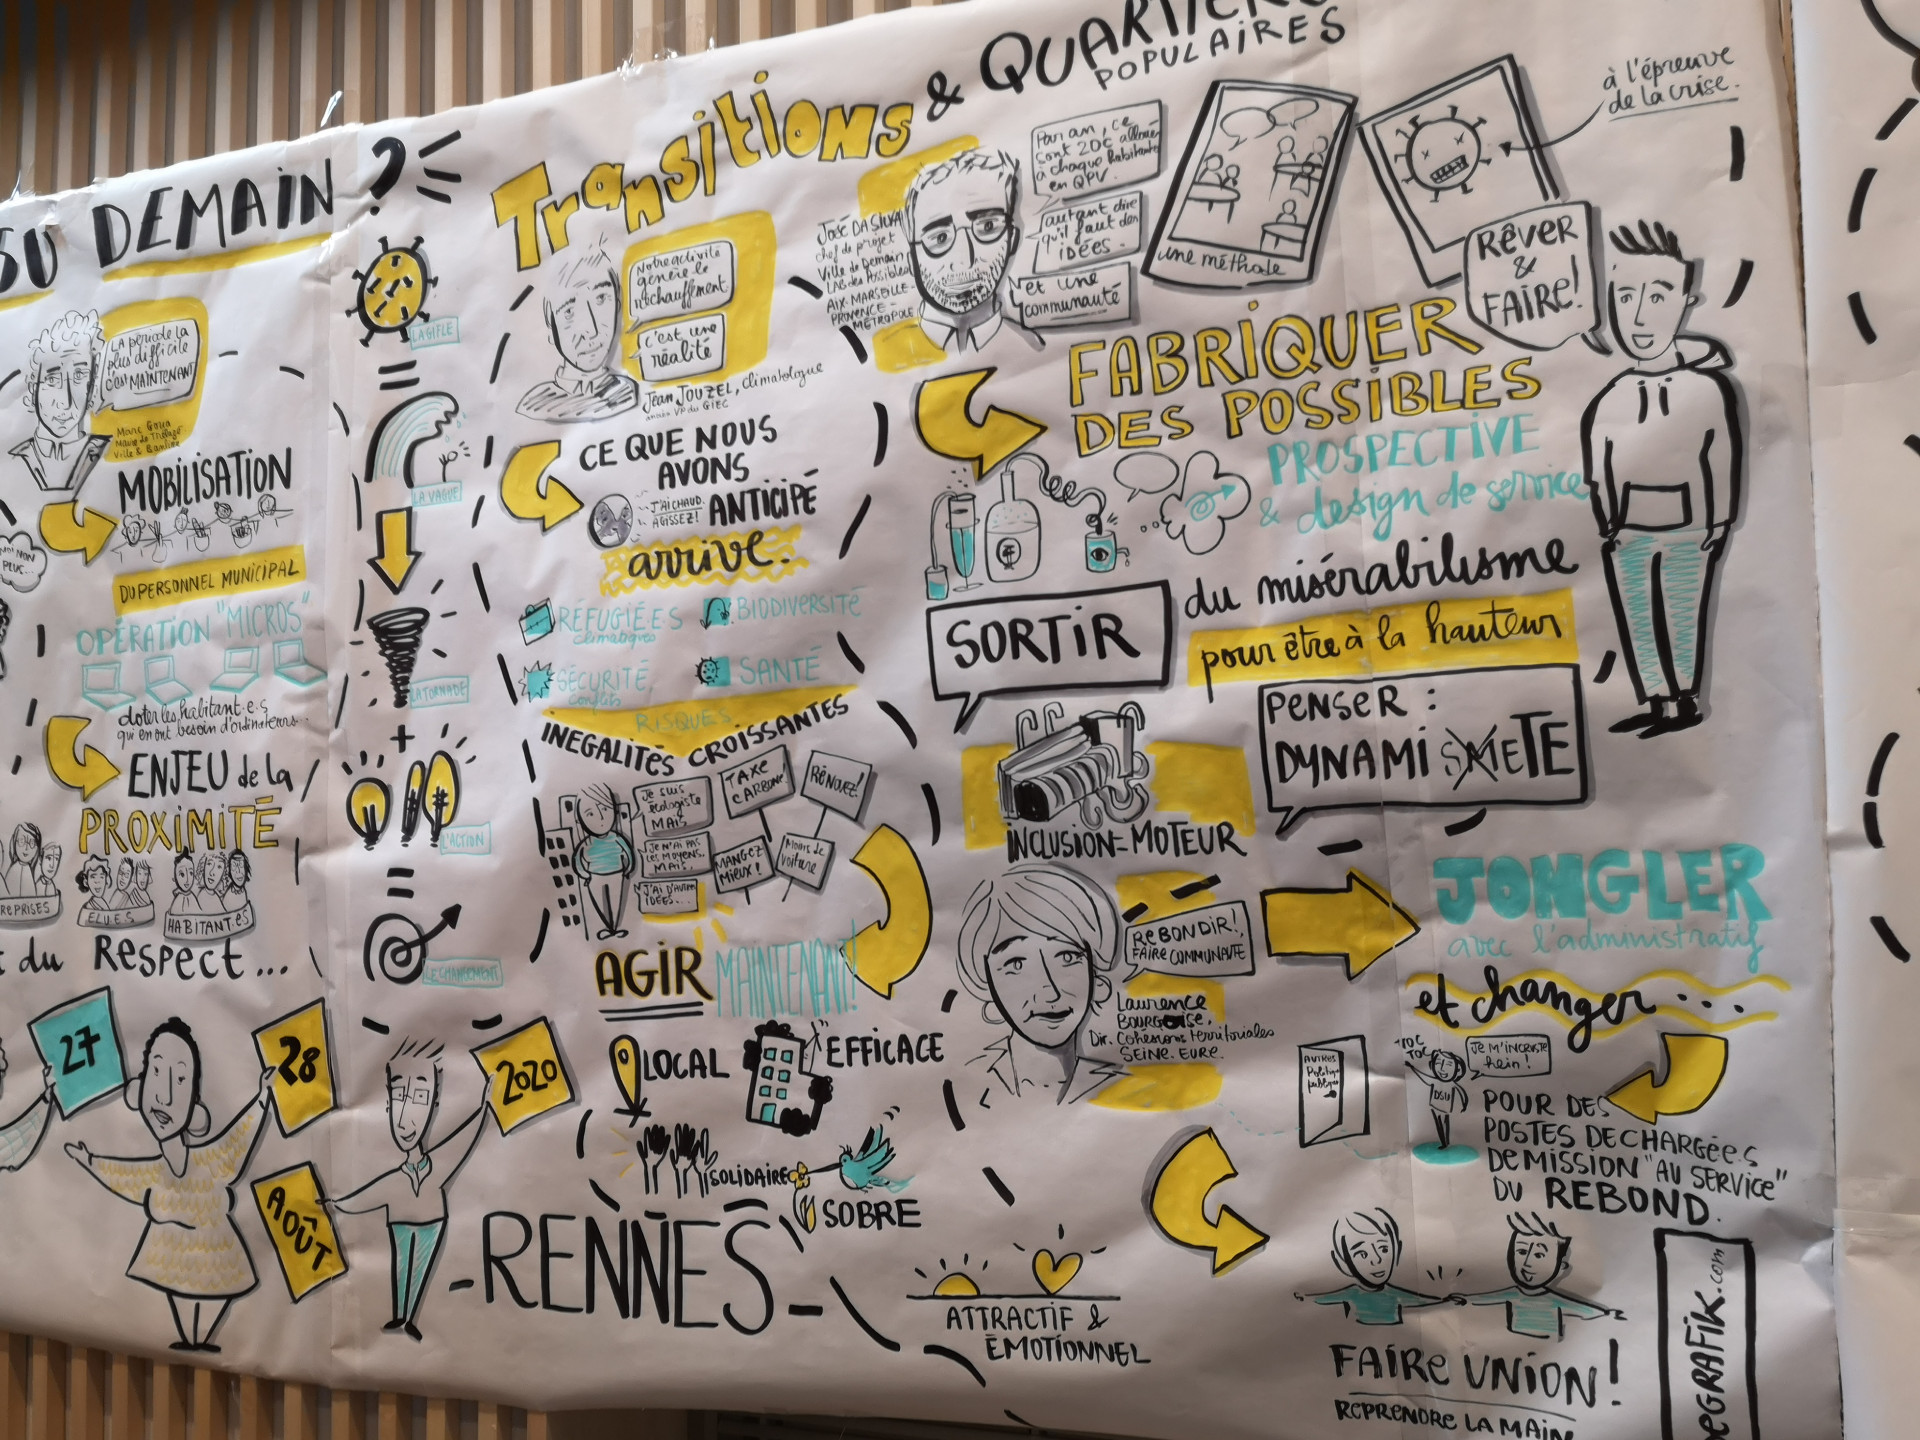 DEMAIN ?
LA période la
plus difficile
c'est MAINTENANT
Marc Goua
Maire de Trélazé
Ville & Banlieue
MOBILISATION
DU PERSONNEL MUNICIPAL
OPÉRATION "MICROS"
doter les habitant·e·s
qui en ont besoin d'ordinateurs...
ENJEU de la
PROXIMITÉ
ELU·E·S
HABITANT·e·S
du Respect...
27
28
AOÛT
2020
LA GIFLE
=
LA VAGUE
LA TORNADE
+
L'ACTION
=
LE CHANGEMENT
Transitions & QUARTIERS
POPULAIRES
Notre activité
génère le
réchauffement
c'est une
réalité
Jean JOUZEL, climatologue
ancien VP du GIEC
CE QUE NOUS
AVONS
J'AI CHAUD.
AGISSEZ!
ANTICIPÉ
arrive.
RÉFUGIÉ·E·S
climatiques
BIODIVERSITÉ
SÉCURITÉ,
conflits
SANTÉ
RISQUES
INEGALITÉS CROISSANTES
Je suis
écologiste
MAIS
Je n'ai pas
les moyens,
MAIS...
J'AI D'AUTRES
IDÉES...
TAXE
CARBONE!
RÉNOVEZ!
MANGEZ
MIEUX!
Moins de
voiture
AGIR MAINTENANT!
LOCAL
EFFICACE
SOLIDAIRE
SOBRE
- RENNES -
ATTRACTIF &
ÉMOTIONNEL
José DA SILVA
chef de projet
Ville de Demain
LAB des possibles
AIX-MARSEILLE-
PROVENCE-
MÉTROPOLE
Par an, ce
sont 20€ alloués
à chaque habitant·e
en QPV.
autant dire
qu'il faut des
iDÉES.
et une
communauté
une méthode
à l'épreuve
de la crise.
RÊVER
&
FAIRE!
FABRIQUER
DES POSSIBLES
PROSPECTIVE
& design de service
SORTIR
du misérabilisme
pour être à la hauteur
PENSER :
DYNAMISMETE
INCLUSION=MOTEUR
REBONDIR!,
FAIRE COMMUNAUTÉ
Laurence
BOURGOISE,
Dir. Cohésions territoriales
SEINE-EURE.
JONGLER
avec l'administratif
et changer...
AUTRES
Politiques
publiques
TOC
TOC
Je m'incruste
hein!
DSU
POUR DES
POSTES DE CHARGÉ·E·S
DE MISSION "AU SERVICE"
DU REBOND.
FAIRE UNION!
REPRENDRE LA MAIN